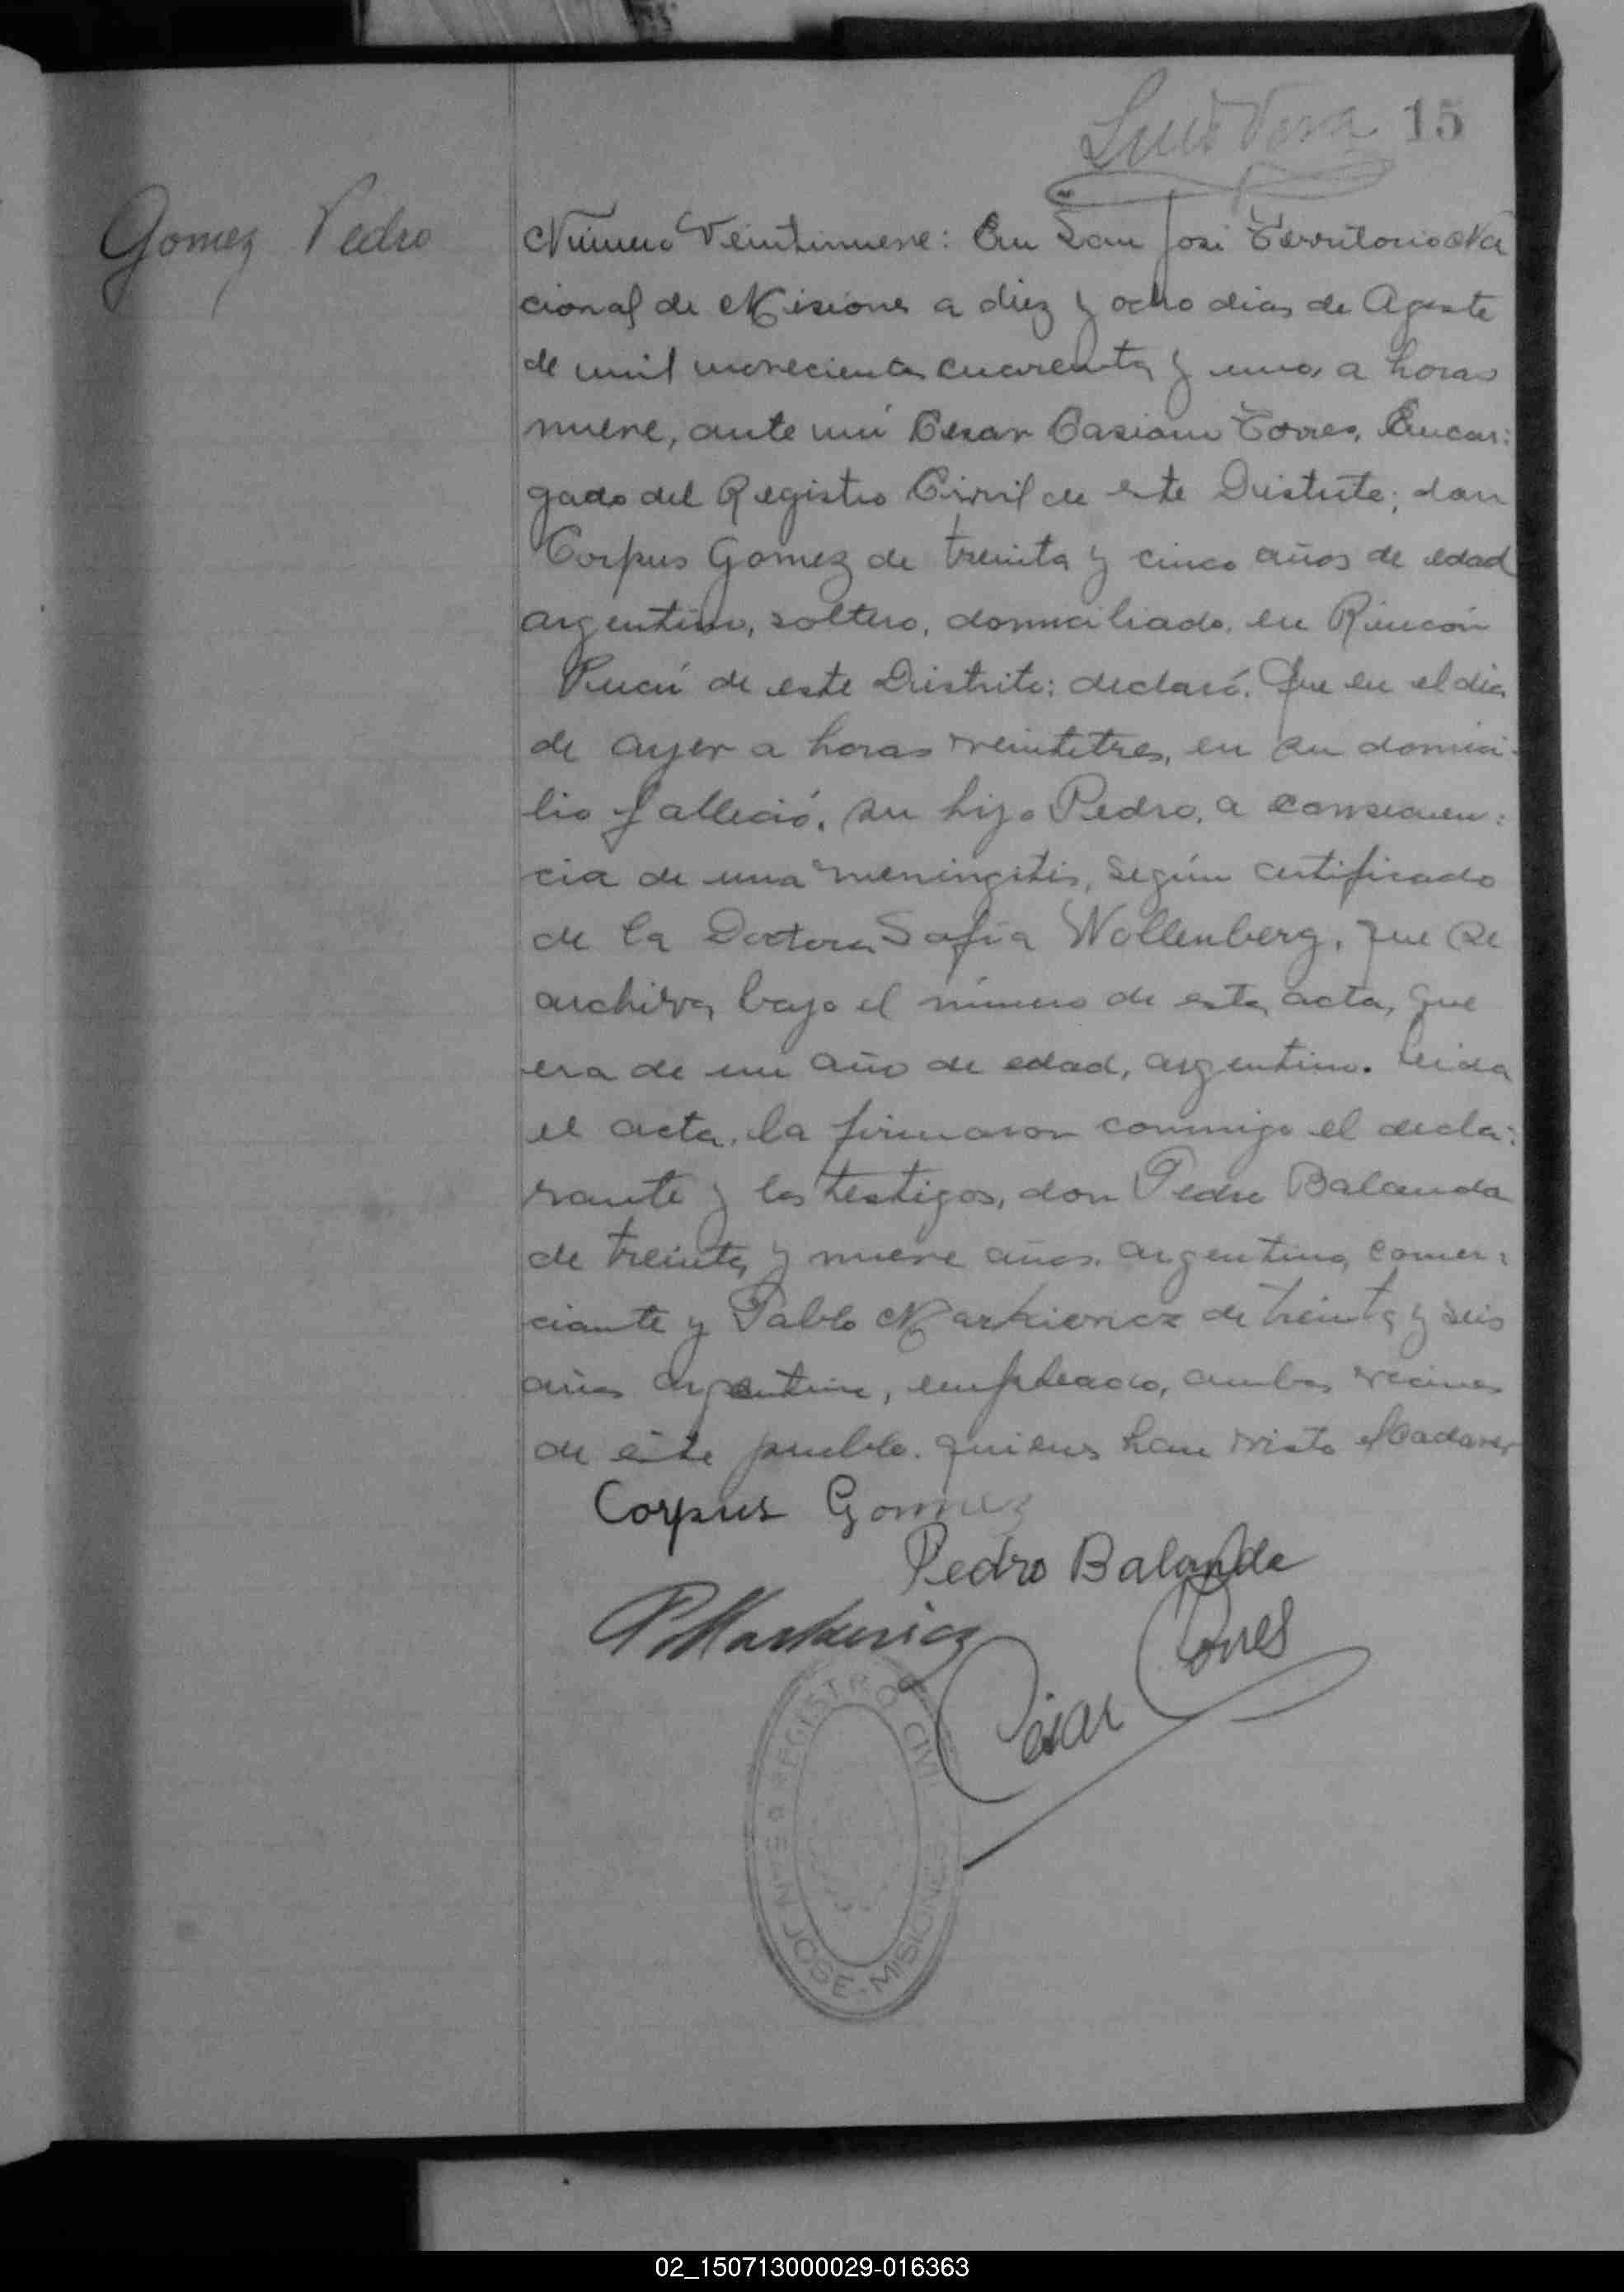 Luis Vera 15
Gomez Pedro
Número Veintinueve: En San José Territorio Na
cional de Misiones a diez y ocho dias de Agosto
de mil novecientos cuarenta y uno, a horas
nueve, ante mi Cesar Casiano Torres, Encar:
gado del Registro Civil de este Distrito; don
Corpus Gomez de treinta y cinco años de edad
argentino, soltero, domiciliado, en Rincón
de este Distrito: declaró. Que en el dia
de ayer a horas veintitres, en su domici:
lio falleció, su hijo Pedro, a consecuen:
cia de una meningitis, según certificado
de la Doctora Sofia Wollenberg, que se
archiva, bajo el número de esta acta, que
era de un año de edad, argentino. Leida
el acta, la firmaron conmigo el decla:
rante y los testigos, don Pedro Balanda
de treinta y nueve años, argentino, comer:
ciante y Pablo Markievicz de treinta y seis
años argentino, empleado, ambos vecinos
de este pueblo. quienes han visto el cadaver
Corpus Gomez
Pedro Balanda
P Markievicz
Cesar Torres
REGISTRO CIVIL
SAN JOSE - MISIONES
02_150713000029-016363